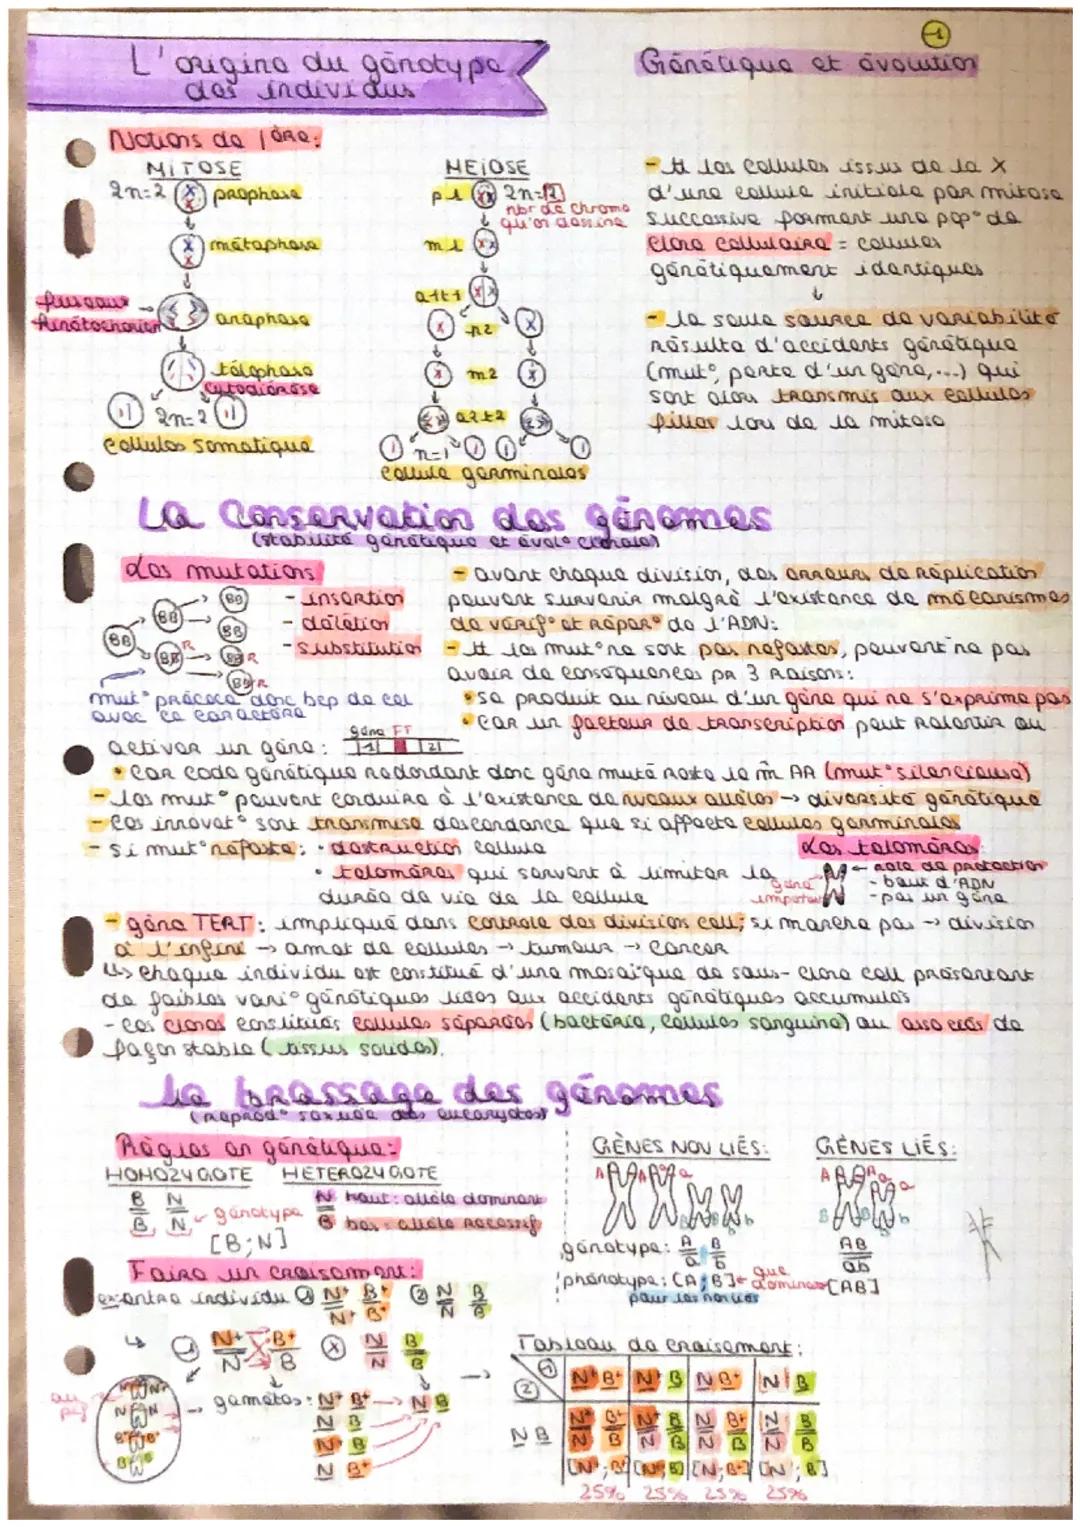 1
L'origine du génotype
des individus
Génétique et évolution
Notions de 1ère:
MITOSE
2n=2
prophase
métaphase
anaphase
télophase
cytodiérèse
2n=2
cellules somatique
MÉIOSE
p1
2n=2
nbr de chromo
qu'on dessine
m1
a1t1
p2
m2
a2t2
n=1
cellule germinales
- tt les cellules issus de la X
d'une cellule initiale par mitose
successive forment une pop° de
clone cellulaire = cellules
génétiquement identiques
- la seule source de variabilité
résulte d'accidents génétique
(mut°, perte d'un gène,...) qui
sont alors transmis aux cellules
filles lors de la mitose
La Conservation des génomes
(stabilité génétique et évol° clonale)
Les mutations
BB
BB
BB
BB
BB
R
BB R
BB R
- insertion
- délétion
- substitution
mut° précoce donc bcp de cel
avec ce caractère
- avant chaque division, des erreurs de réplication
peuvent survenir malgré l'existence de mécanismes
de vérif° et répar° de l'ADN:
- tt les mut° ne sont pas nefastes, peuvent ne pas
avoir de conséquences pr 3 raisons:
• se produit au niveau d'un gène qui ne s'exprime pas
• car un facteur de transcription peut ralentir ou
activer un gène:
gène FT
• car code génétique redondant donc gène muté reste le m̂ AA (mut° silencieuse)
- les mut° peuvent conduire à l'existence de nveaux allèles → diversité génétique
- ces innovat° sont transmise descendance que si affecte cellules germinales
- si mut° néfaste: • destruction cellule
• telomères qui servent à limiter la
durée de vie de la cellule
Les telomères:
gène
important
← role de protection
- bout d'ADN
- pas un gène
- gène TERT: impliqué dans controle des division cell; si marche pas → division
à l'infini → amat de cellules → tumeur → cancer
↳ chaque individu est constitué d'une mosaïque de sous-clone cell présentant
de faibles vari° génétiques liées aux accidents génétiques accumulés
- ces clones constitués cellules séparées (bactérie, cellules sanguine) ou associés de
façon stable (tissus solides).
Le brassage des génomes
(reprod° sexuée des eucaryotes)
Règles en génétique:
HOMOZYGOTE
HETEROZYGOTE
B N
B, N
génotype
[B;N]
N haut: allèle dominant
B bas: allèle récessif
GÈNES NON LIÉS:
A A a
B b
génotype: A B
a b
phénotype: [A;B] ← que
dominant
pour les non liés
GÈNES LIÉS:
A A a a
B b
AB
ab
[AB]
Faire un croisement:
ex: entre individu ① N+ B+ ② N B
N+ B+ N B
↳ ① N+ B+ Ⓧ N B
N B N B
→ gamètes: N+ B+ → N B
N B
N+ B
N B+
Tableau de croisement:
① ②
N+ B+ N+ B N B+ N B
N B
N+ B+ N+ B N B+ N B
N B N B N B N B
[N+;B+] [N+;B] [N;B+] [N;B]
25% 25% 25% 25%